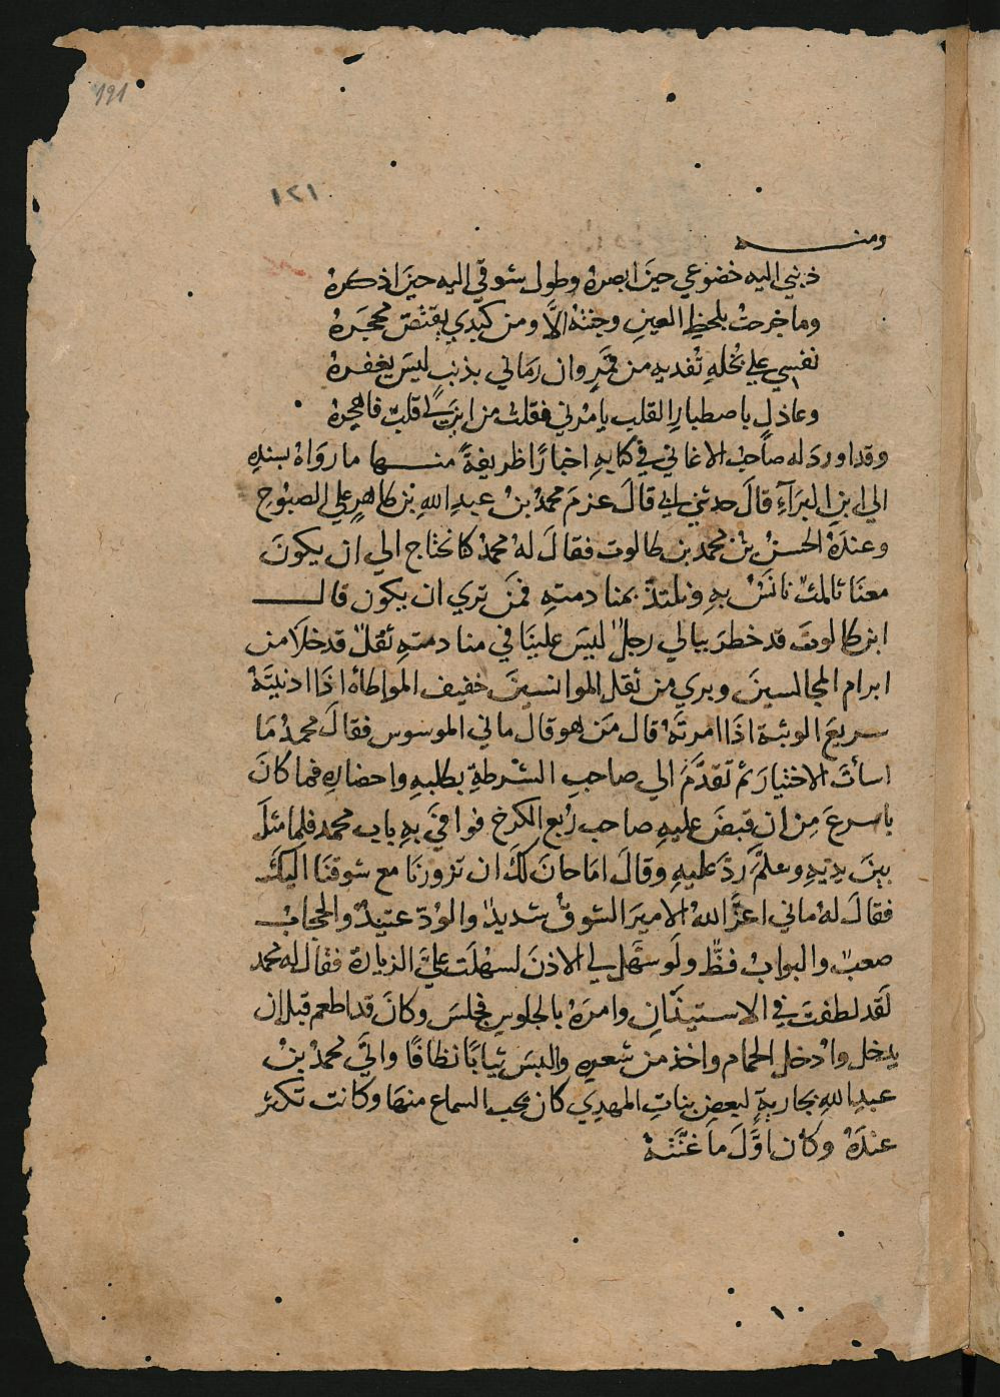 191
١٢١
ومنه
ذنبي اليه خضوعي حينَ ابصرهُ وطول شوقي اليه حينَ اذكرهُ
وما جرحتُ بلحظِ العينِ وجنتهُ الَّا ومن كبدي يقتصّ محجرهُ
نفسي علي بخلهِ تفديهِ من قمرٍ وان رماني بذنبٍ ليسَ يغفرهُ
وعاذلٍ باصطبارِ القلب يامرني فقلتُ من اينَ لي قلبٌ فاهجرهُ
وقد اوردَ له صاحبُ الاغاني في كتابهِ اخبارًا ظريفةً منها ما روَاهُ بسندهِ
الي ابن البرَآءِ قالَ حدثني ابي قالَ عزمَ محمدُ بنُ عبدِ اللهِ بن طاهرٍ علي الصبُوحِ
وعندَهُ الحسنُ بنُ محمد بن طالوت فقالَ لهُ محمدُ كنا نحتاج الي ان يكونَ
معنَا ثالثٌ نانسُ بهِ ونلتذّ بمنادمتهِ فمَن تري ان يكون قال
ابن طالوتَ قد خطرَ ببالي رجلٌ ليسَ علينَا في منادمتهِ ثقلٌ قد خلَا من
ابرام المجالسينَ وبري من ثقل الموانسينَ خفيف المواطاهْ اذَا ادنيتَهُ
سريعَ الوثبة اذَا امرتَهُ قال مَن هو قال ماني الموسوس فقالَ محمدُ مَا
اسأتَ الاختيارَ ثم تقدَّمَ الي صاحبِ الشرطةِ بطلبهِ واحضارِهِ فما كانَ
باسرعَ مِن ان قبضَ عليهِ صاحب رُبع الكرخ فوافيَ بهِ باب محمد فلما مثلَ
بينَ يديهِ وسلمَ ردّ عليهِ وقالَ امَا حانَ لكَ ان تزورنَا مع شوقنَا اليكَ
فقالَ لهُ ماني اعزَّ اللهُ الاميرَ الشوقُ شديدٌ والودّ عتيدٌ والحجابُ
صعبٌ والبوابُ فظٌّ ولَو سَّهل لي الاذنَ لسهُلَت عليَّ الزيارة فقال له محمد
لَقد لطفتَ في الاستيذَانِ وامرَهُ بالجلوسِ فجلسَ وكانَ قد اطعم قبل ان
يدخل وادْخل الحمام واخذ من شعرِهِ والبسَ ثيابًا نظافًا واتيَ محمدُ بنُ
عبدِ اللهِ بجاريةٍ لبعضِ بناتِ المهدي كان يحب السماع منهَا وكانت تكثر
عندَهُ وكان اوَّلَ ما غنَّتهُ